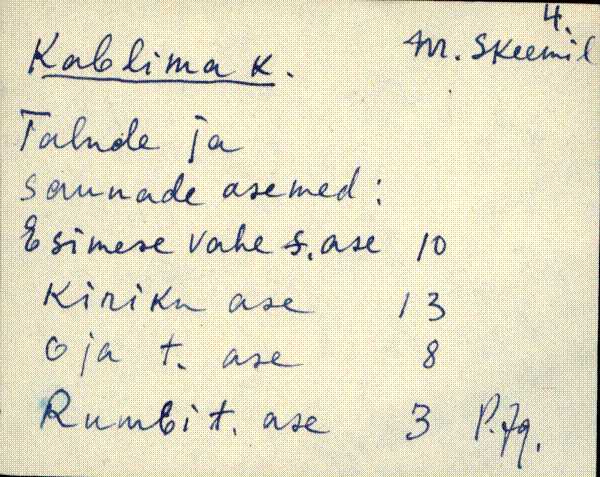 4.
Kablima k. M. Skeemil
Talude ja
saunade asemed:
Esimese vahe s. ase 10
Kiriku ase 13
Oja t. ase 8
Rumbi t. ase 3 P.